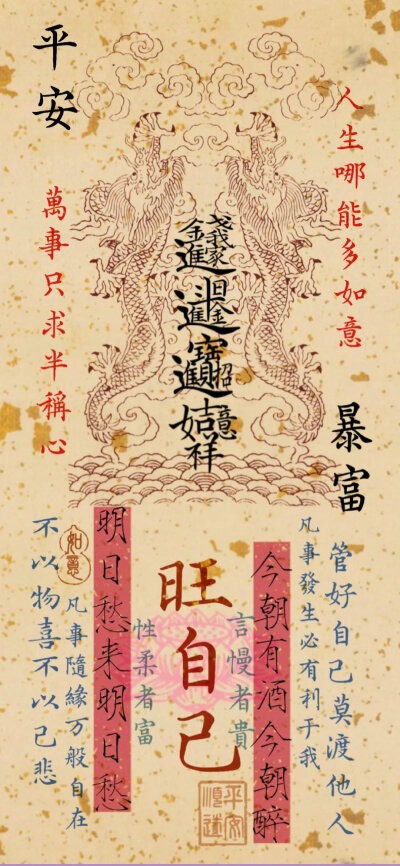 平安
人生哪能多如意
萬事只求半稱心
金錢進我家
日進斗金
招財進寶
吉祥如意
暴富
管好自己莫渡他人
凡事發生必有利于我
今朝有酒今朝醉
言慢者貴
旺自己
性柔者富
明日愁来明日愁
如意
凡事隨緣万般自在
不以物喜不以己悲
平安順遂